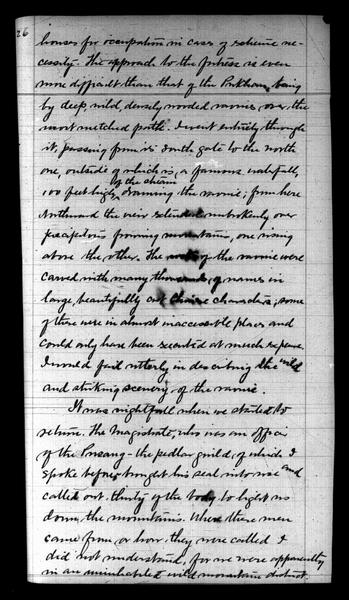 26
houses for occupation in case of extreme ne-
cessity. The approach to the fortress is even
more difficult than that of the Pukhan, being
by deep, wild, densely wooded ravines, over the
most wretched path. I went entirely through
it, passing from its south gate to the north
one, outside of which is a famous waterfall,
100 feet high, of the stream draining the ravine; from here
Northward the view extended unbrokenly over
precipitous frowning mountains, one rising
above the other. The of the ravine were
carved with many thousands of names in
large, beautifully cut Chinese characters; some
of these were in almost inaccessible places and
could only have been executed at much expense.
I would fail utterly in describing the wild
and striking scenery of the ravine.
It was nightfall when we started to
return. The Magistrate, who was an officer
of the Pusang - the pedlar guild, of which I
spoke before, brought his seal into use and
called out thirty of the body to light us
down the mountains. Where these men
came from or how they were called I
did not understand, for we were apparently
in an uninhabited wild mountain district.